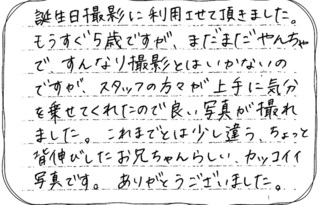 誕生日撮影に利用させて頂きました。
もうすぐ5歳ですが、まだまだやんちゃ
で、すんなり撮影とはいかないの
ですが、スタッフの方々が上手に気分
を乗せてくれたので良い写真が撮れ
ました。これまでとは少し違う、ちょっと
背伸びしたお兄ちゃんらしい、カッコイイ
写真です。ありがとうございました。